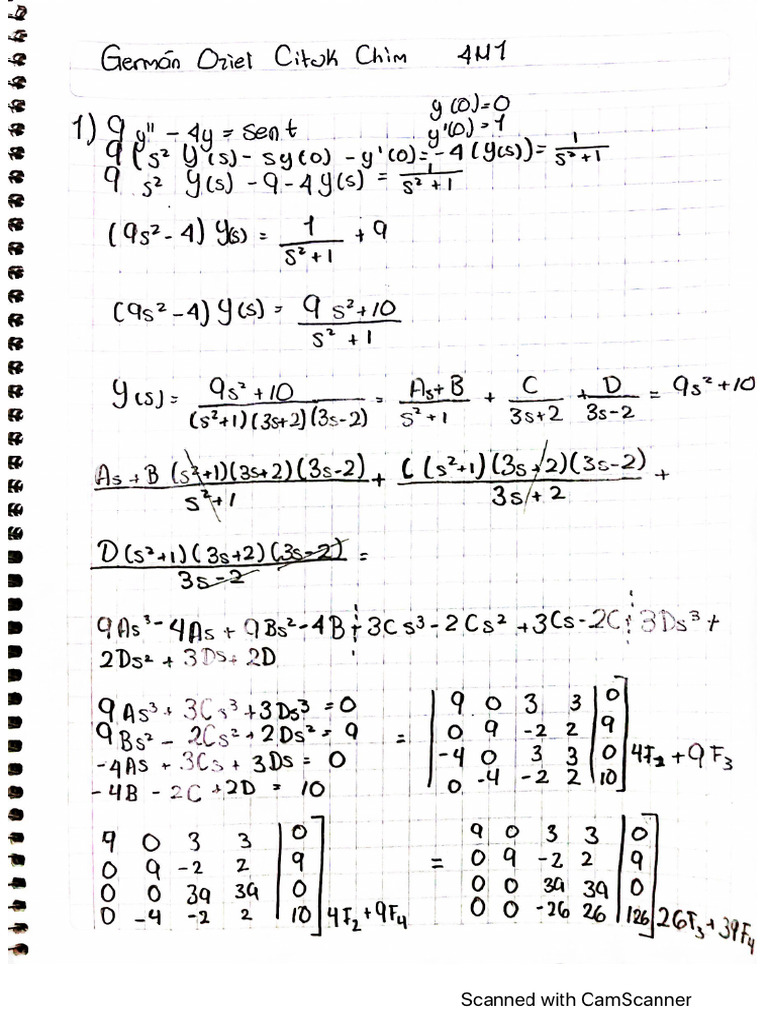 Germán Oziel Cituk Chim 4M1
y(0)=0
1) 9y'' - 4y = sen t y'(0)=1
9(s² y(s) - sy(0) - y'(0) = -4(y(s)) = 1/(s²+1)
9 s² y(s) - 9 - 4y(s) = 1/(s²+1)
(9s² - 4) y(s) = 1/(s²+1) + 9
(9s² - 4) y(s) = (9s²+10)/(s²+1)
y(s) = (9s²+10)/((s²+1)(3s+2)(3s-2)) = (As+B)/(s²+1) + C/(3s+2) + D/(3s-2) = 9s²+10
As+B(s²+1)(3s+2)(3s-2)/(s²+1) + C(s²+1)(3s+2)(3s-2)/(3s+2) +
D(s²+1)(3s+2)(3s-2)/(3s-2) =
9As³ - 4As + 9Bs² - 4B + 3Cs³ - 2Cs² + 3Cs - 2C + 3Ds³ +
2Ds² + 3Ds + 2D
9As³ + 3Cs³ + 3Ds³ = 0
9Bs² - 2Cs² + 2Ds² = 9
-4As + 3Cs + 3Ds = 0
-4B - 2C + 2D = 10
= | 9 0 3 3 | 0 ]
0 9 -2 2 | 9
-4 0 3 3 | 0
0 -4 -2 2 | 10 ] 4F₂ + 9F₃
9 0 3 3 | 0
0 9 -2 2 | 9
0 0 39 39 | 0
0 -4 -2 2 | 10 ] 4F₂ + 9F₄
= 9 0 3 3 | 0
0 9 -2 2 | 9
0 0 39 39 | 0
0 0 -26 26 | 126 ] 26F₃ + 39F₄
Scanned with CamScanner